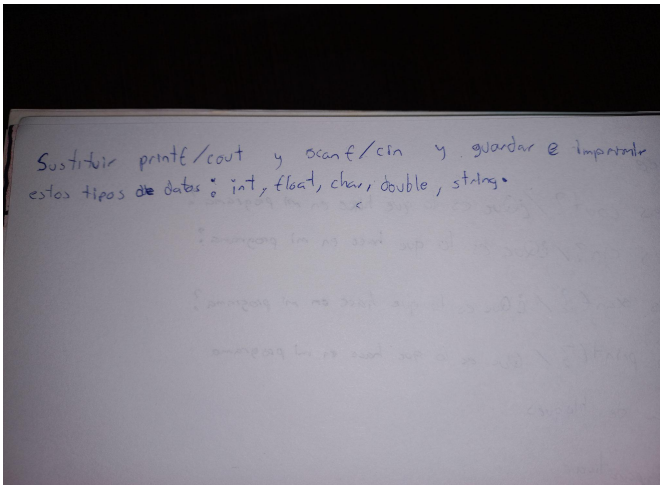 Sustituir printf/cout y scanf/cin y guardar e imprimir
estos tipos de datos: int, float, char, double, string.